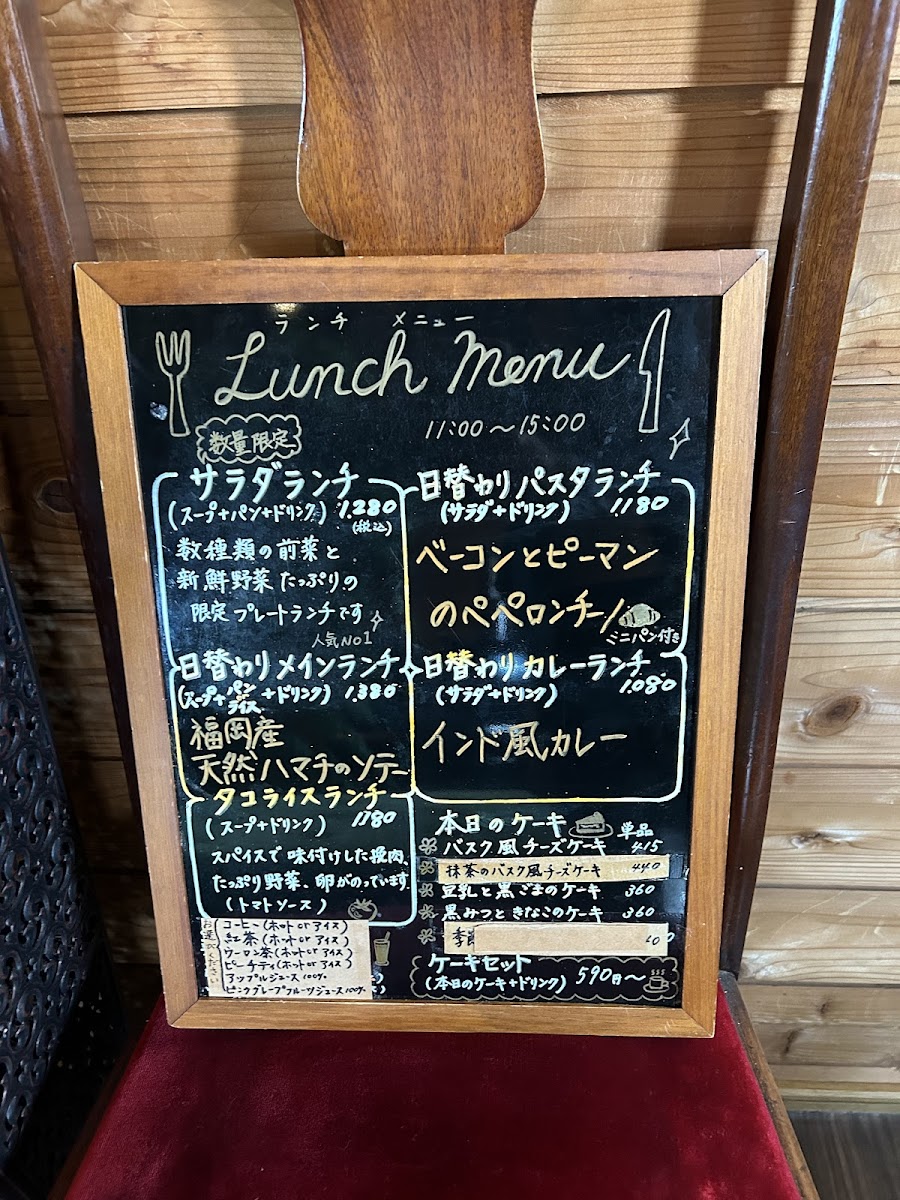 ランチ メニュー
Lunch Menu
11:00〜15:00
数量限定
サラダランチ
(スープ+パン+ドリンク) 1,280
(税込)
数種類の前菜と
新鮮野菜たっぷりの
限定プレートランチです
人気No1
日替わりパスタランチ
(サラダ+ドリンク) 1180
ベーコンとピーマン
のペペロンチーノ
ミニパン付き
日替わりメインランチ
(スープ+パンorライス+ドリンク) 1,380
福岡産
天然ハマチのソテー
日替わりカレーランチ
(サラダ+ドリンク) 1,080
インド風カレー
タコライスランチ
(スープ+ドリンク) 1180
スパイスで味付けした挽肉、
たっぷり野菜、卵がのっています。
(トマトソース)
お選びください
コーヒー(ホット or アイス)
紅茶(ホット or アイス)
ウーロン茶(ホット or アイス)
ピーチティ(ホット or アイス)
アップルジュース100%
ピンクグレープフルーツジュース100%
本日のケーキ 単品
バスク風チーズケーキ 415
抹茶のバスク風チーズケーキ 440
豆乳と黒ごまのケーキ 360
黒みつときなこのケーキ 360
季節
ケーキセット
(本日のケーキ+ドリンク) 590円〜